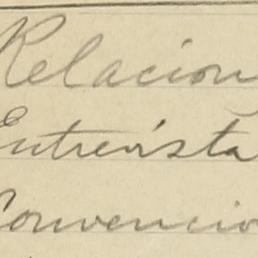 Relacion
Entrevista
Convencio